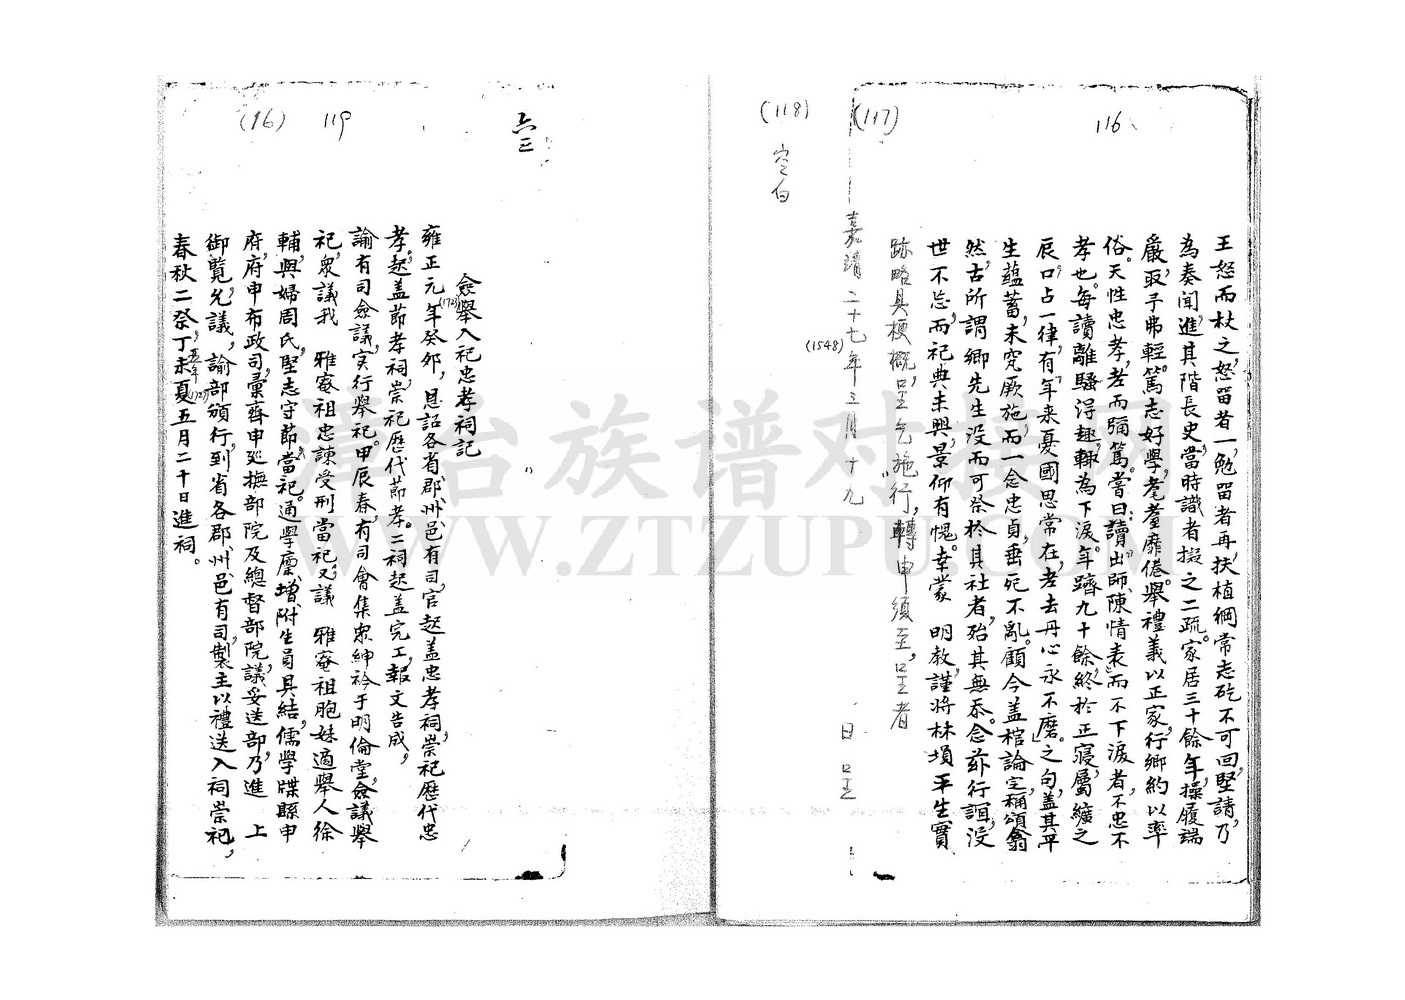 116
王怒而杖之,怒留者一,勉留者再,扶植綱常志矻不可回,堅請乃
為奏聞,進其階長史,當時識者擬之二疏。家居三十餘年,操履端
嚴,取予弗輕。篤志好學,耄耋靡倦。舉禮義以正家,行鄉約以率
俗。天性忠孝,老而彌篤。嘗曰:讀出師、陳情表,而不下淚者,不忠不
孝也。每讀離騷得趣,輒為下淚。年躋九十餘,終於正寢,屬纊之
辰,口占一律,有「年來憂國思常在,老去丹心永不磨。」之句,蓋其平
生蘊蓄,未究厥施,而一念忠貞,垂死不亂。顧今蓋棺論定,稱頌翕
然,古所謂鄉先生沒而可祭於其社者,殆其無忝。念茲行誼,沒
世不忘,而祀典未興,景仰有愧。幸蒙 明教,謹將林塤平生實
跡略具梗概,呈乞施行,轉申須至,呈者
(117)
嘉靖二十七年三月十九 日呈
(1548)
(118)
空白
119
(16)
僉舉入祀忠孝祠記
雍正元年癸卯,恩詔各省郡州邑有司,官起蓋忠孝祠,崇祀歷代忠
(1723)
孝。起蓋節孝祠,崇祀歷代節孝。二祠起蓋完工,報文告成,
諭有司僉議,实行舉祀。甲辰春,有司會集衆紳衿于明倫堂,僉議舉
祀,衆議我 雅菴祖忠諫受刑當祀,又議 雅菴祖胞妹適舉人徐
輔興婦周氏,堅志守節當祀。通學廩、增、附生員具結,儒學牒縣申
府,府申布政司,彙齊申廵撫部院及總督部院,議妥送部,乃進 上
御覽,允議,諭部頒行,到省各郡州邑有司,製主以禮送入祠崇祀,
春秋二祭,丁未夏五月二十日進祠。
五年
(1727)